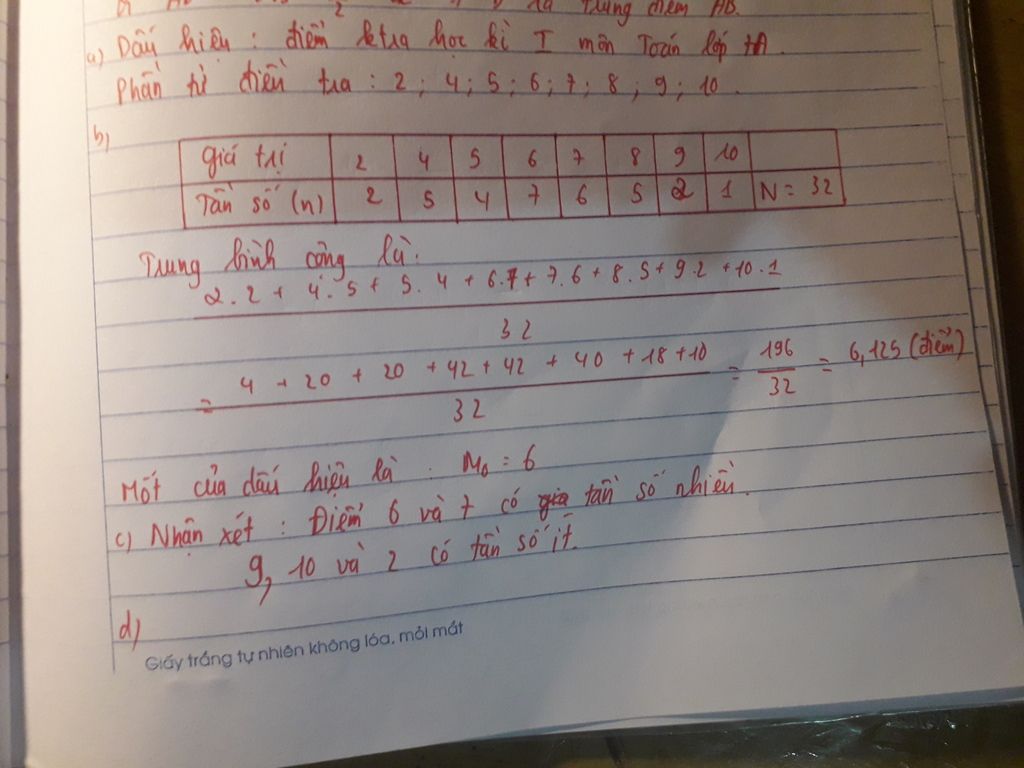 là trung điểm AB.
a) Dấu hiệu : điểm ktra học kì I môn Toán lớp 7A.
Phần tử điền tra : 2 ; 4 ; 5 ; 6 ; 7 ; 8 ; 9 ; 10 .
b)
Giá trị 2 4 5 6 7 8 9 10
Tần số (n) 2 5 4 7 6 5 2 1 N = 32
Trung bình cộng là :
2.2 + 4.5 + 5.4 + 6.7 + 7.6 + 8.5 + 9.2 + 10.1
32
= 4 + 20 + 20 + 42 + 42 + 40 + 18 + 10 = 196 = 6,125 (điểm)
32 32
Mốt của dấu hiện là : M₀ = 6
c) Nhận xét : Điểm 6 và 7 có giá tần số nhiều.
9, 10 và 2 có tần số ít.
d)
Giấy trắng tự nhiên không lóa, mỏi mắt